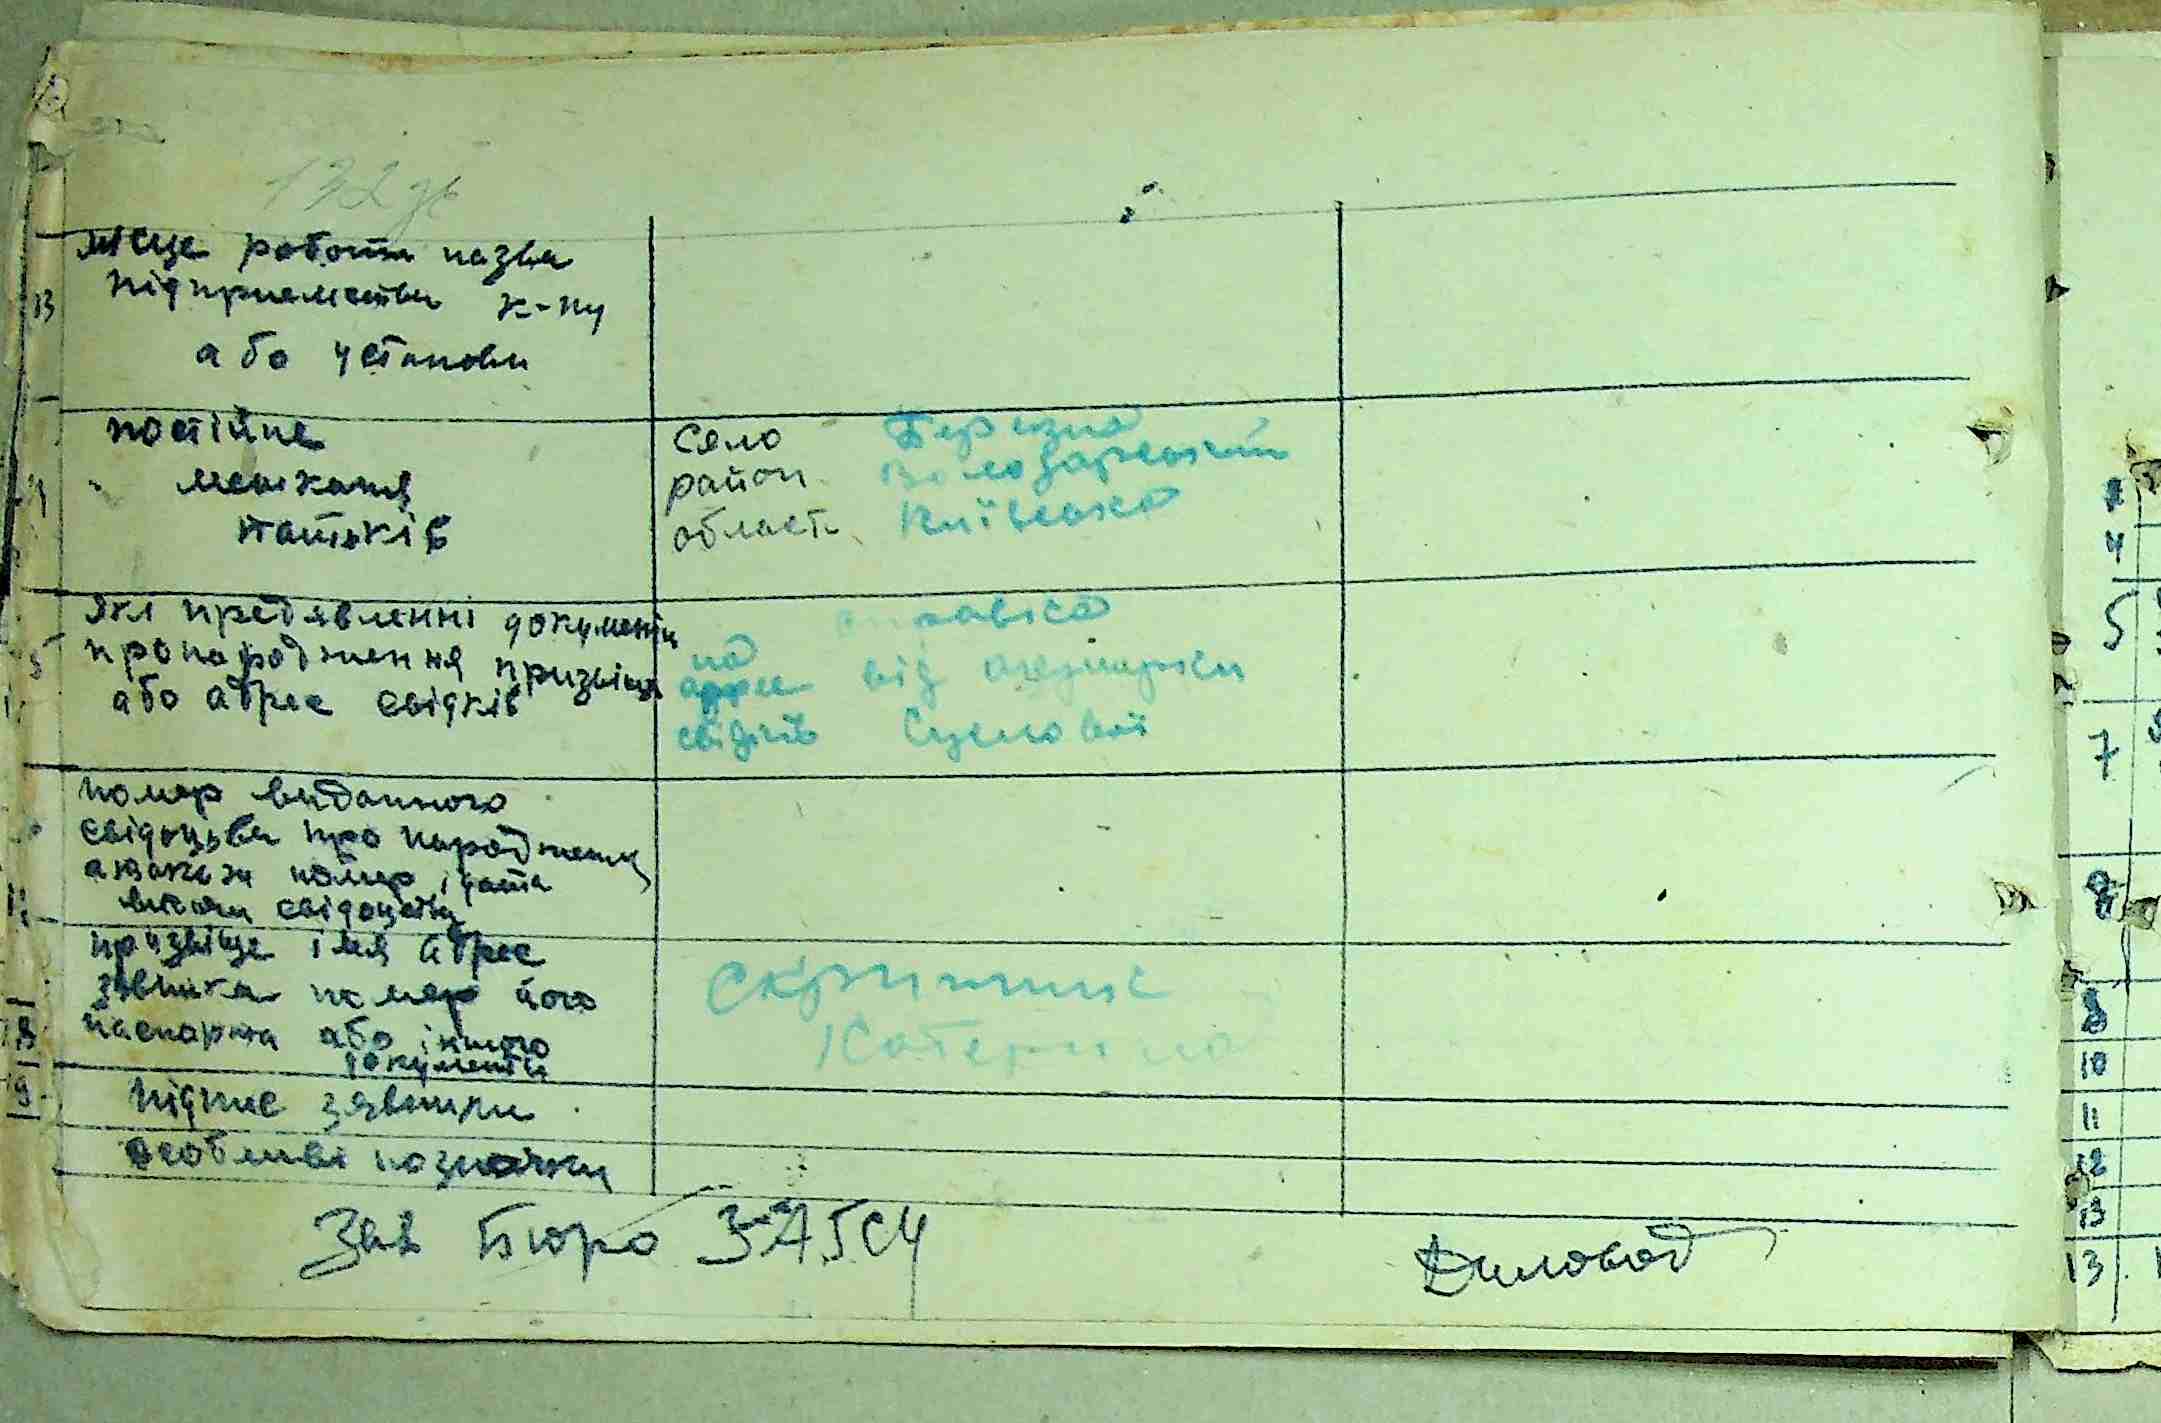 132 зв
місце роботи назва
13 підприємства к-пу
або установи
постійне
мешканя
батьків
село Березна
район Володарський
область Київська
які предявленні документи
пронародження призвіще
або адрес свідків
справка
на
адрес від акушерки
свідків
номер виданного
свідоцьва про народження
також номер і дата
видачи свідоцтва
призвіще імя адрес
заявника номер його
паспорта або іншого
документа
Скрипник
Катерина
підпис заявника
особливі позначки
Зав Бюро ЗАГСУ
Диловод
4
5
7
10
11
12
13
13